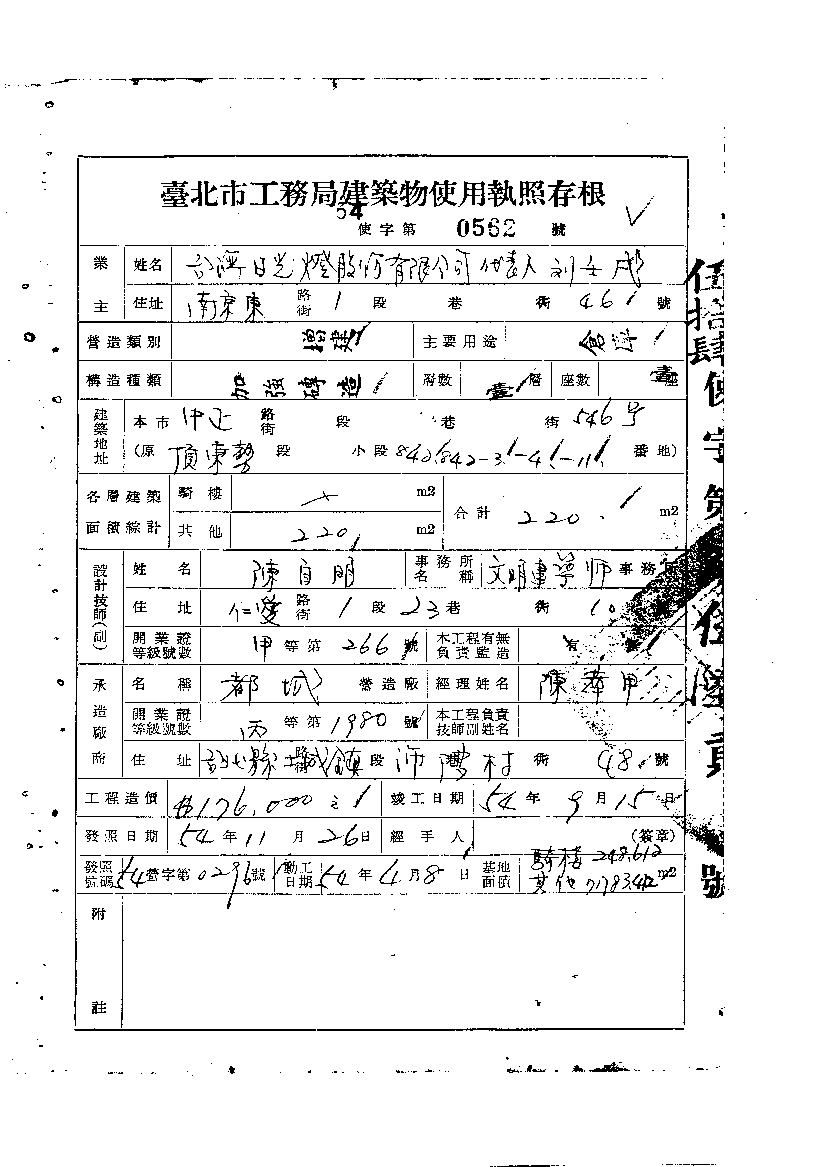 臺北市工務局建築物使用執照存根
54使字第 0562 號
業主 姓名 台灣日光燈股份有限公司代表人刘
住址 南京東 路街 1 段 巷 街 461 號
營造類別 增建 主要用途 倉庫
構造種類 加強磚造 層數 壹層 座數 壹座
建築地址 本市 中正 路街 段 巷 街 546号
(原 頂東勢 段 小段 842,842-3,-4,-11 番地)
各層建築面積綜計 騎樓 m2 合計 220. m2
其他 220 m2
設計技師(副) 姓名 陳自明 事務所名稱 文明建築師事務所
住址 仁愛 路街 1 段 23 巷 街 10 號
開業證等級號數 甲等第 266 號 本工程有無負責監造 有
承造廠商 名稱 都城 營造廠 經理姓名 陳華甲
開業證等級號數 丙等第 1980 號 本工程負責技師副姓名
住址 台北縣土城鎮 路街 段 沛陂村 巷 街 48 號
工程造價 $176,000元 竣工日期 54年9月15日
發照日期 54年11月26日 經手人 (簽章)
發照號碼 54營字第0296號 動工日期 54年4月8日 基地面積 騎樓 248.612 其他 71783.412 m2
附註
伍拾肆使字第 伍陸貳號